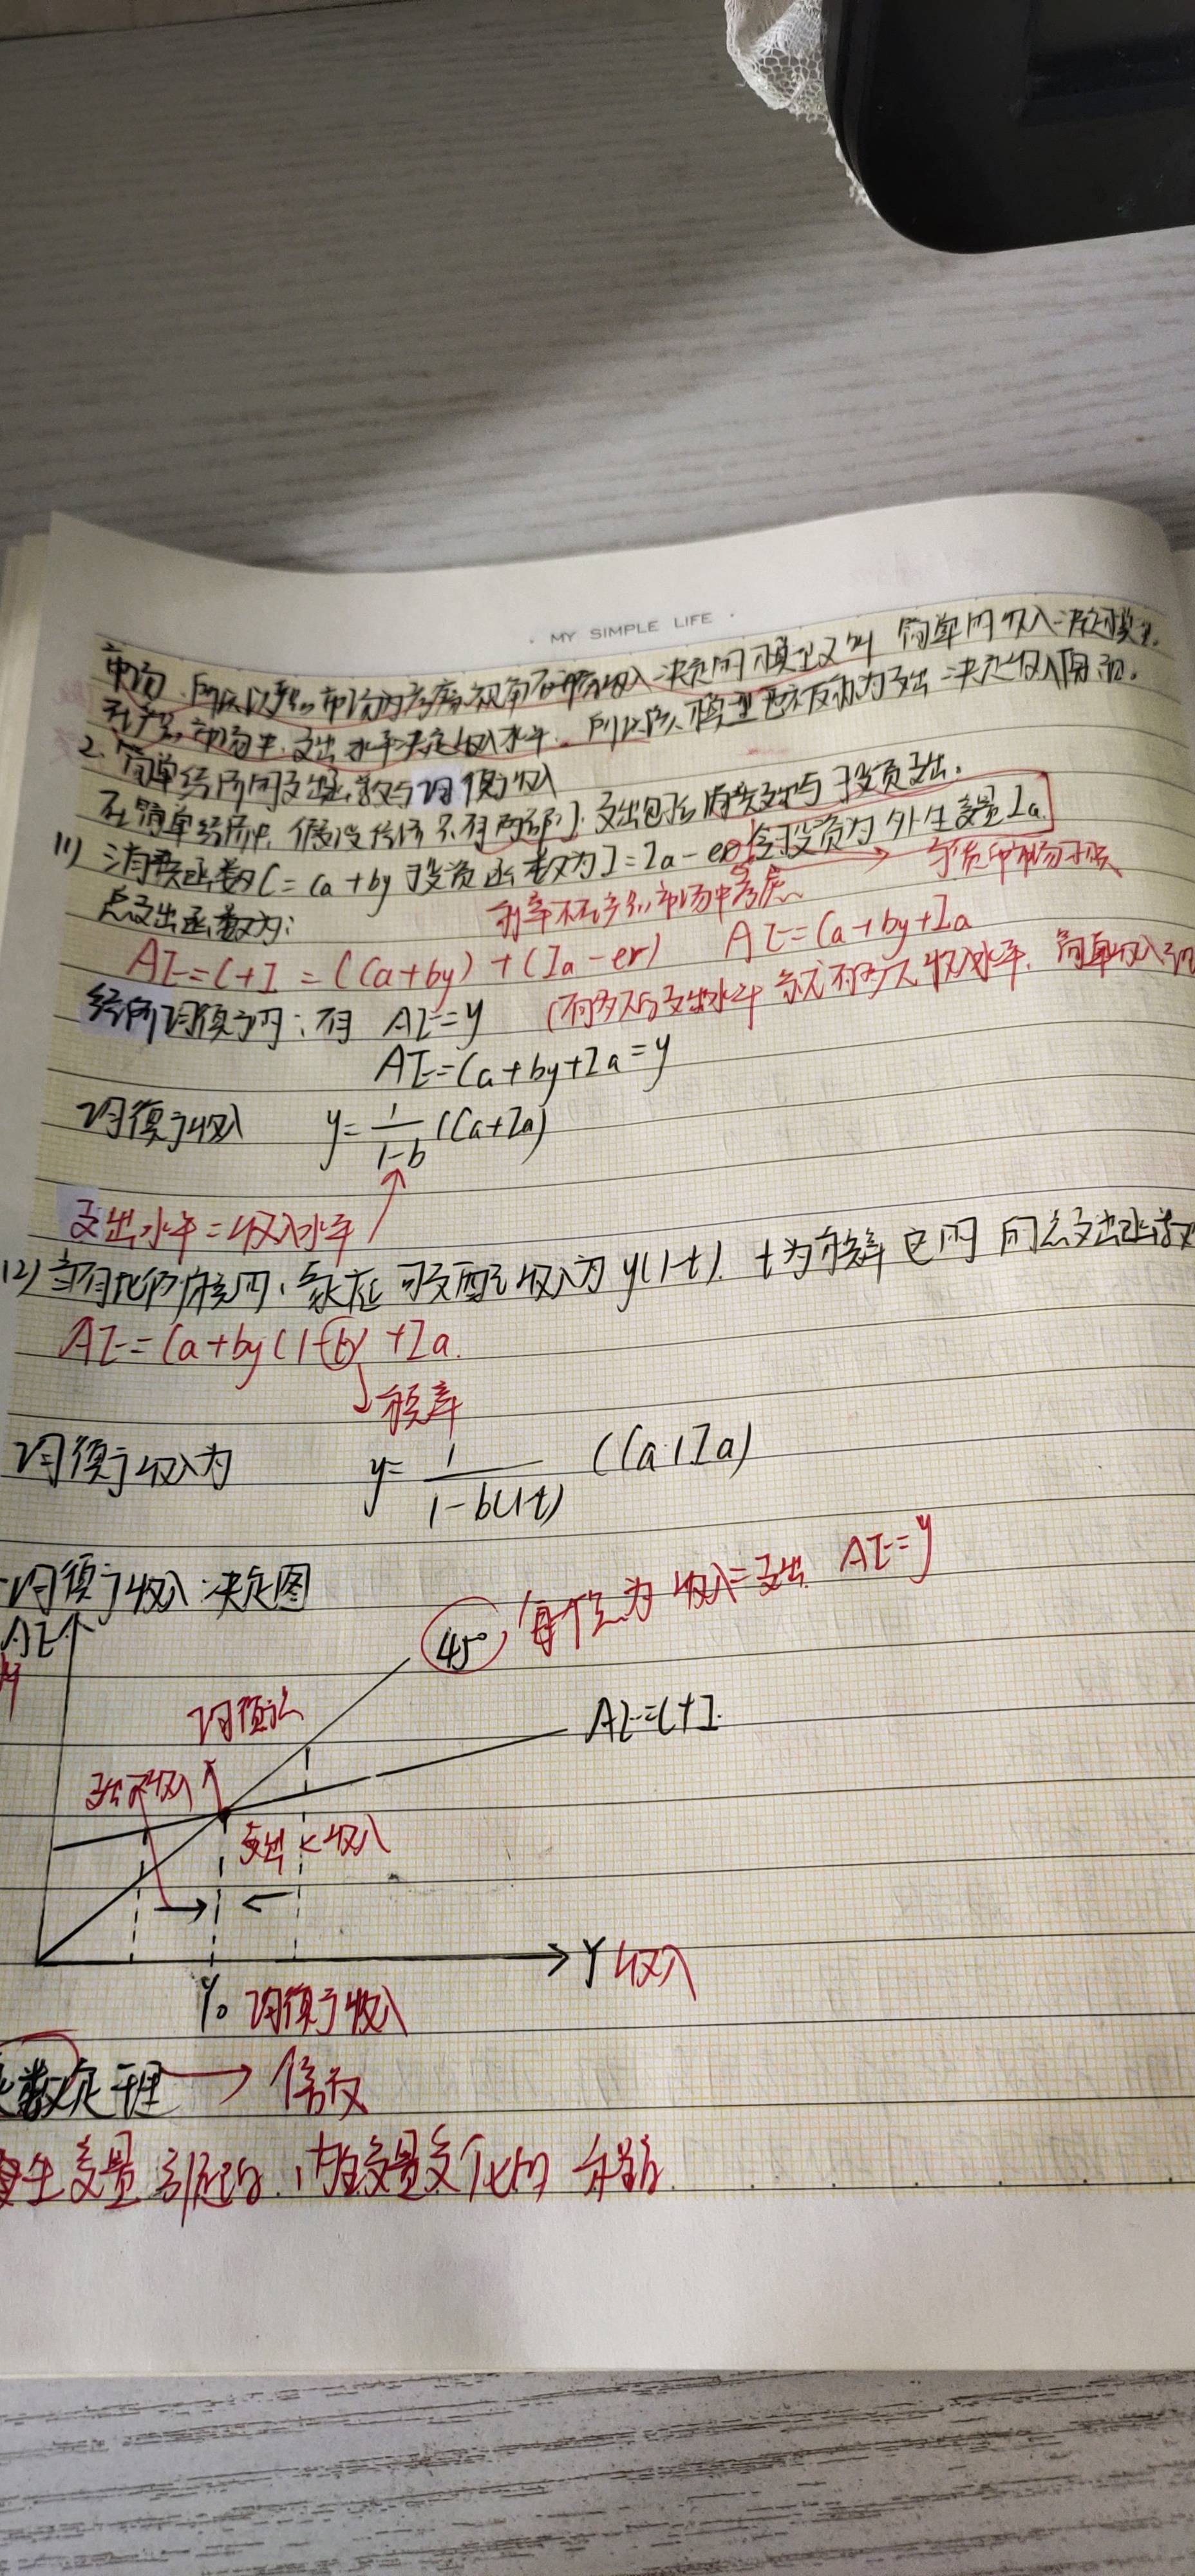 MY SIMPLE LIFE
市场,所以以产品市场为考察视角的均衡收入决定的模型又叫 简单的收入决定模型.
在产品市场中,支出水平决定收入水平. 所以该模型也被称为支出决定收入
2. 简单经济的支出函数与均衡收入
在简单经济中,假设经济不有两部门.支出包括消费支出与投资支出.
(1) 消费函数C=Ca+by 投资函数为I=Ia-er 令投资为外生变量Ia.
利率不在产品市场中考虑
总支出函数为:
AE=C+I=(Ca+by)+(Ia-er) AE=Ca+by+Ia
经济均衡时:有 AE=y (有多大的支出水平就有多大收入水平. 简单收入
AE=Ca+by+Ia=y
均衡收入 y=1/(1-b) (Ca+Ia)
支出水平=收入水平
(2) 当有比例税时,家庭可支配收入为y(1-t). t为税率 此时的总支出函数
AE=Ca+by(1-t)+Ia.
税率
均衡收入为 y=1/(1-b(1-t)) (Ca+Ia)
均衡收入决定图
AE
45° 每个点为收入=支出 AE=y
均衡点
AE=C+I.
支出>收入
支出<收入
Y 收入
Y0 均衡收入
数定理 → 倍数
生变量引起的,内生变量变化的